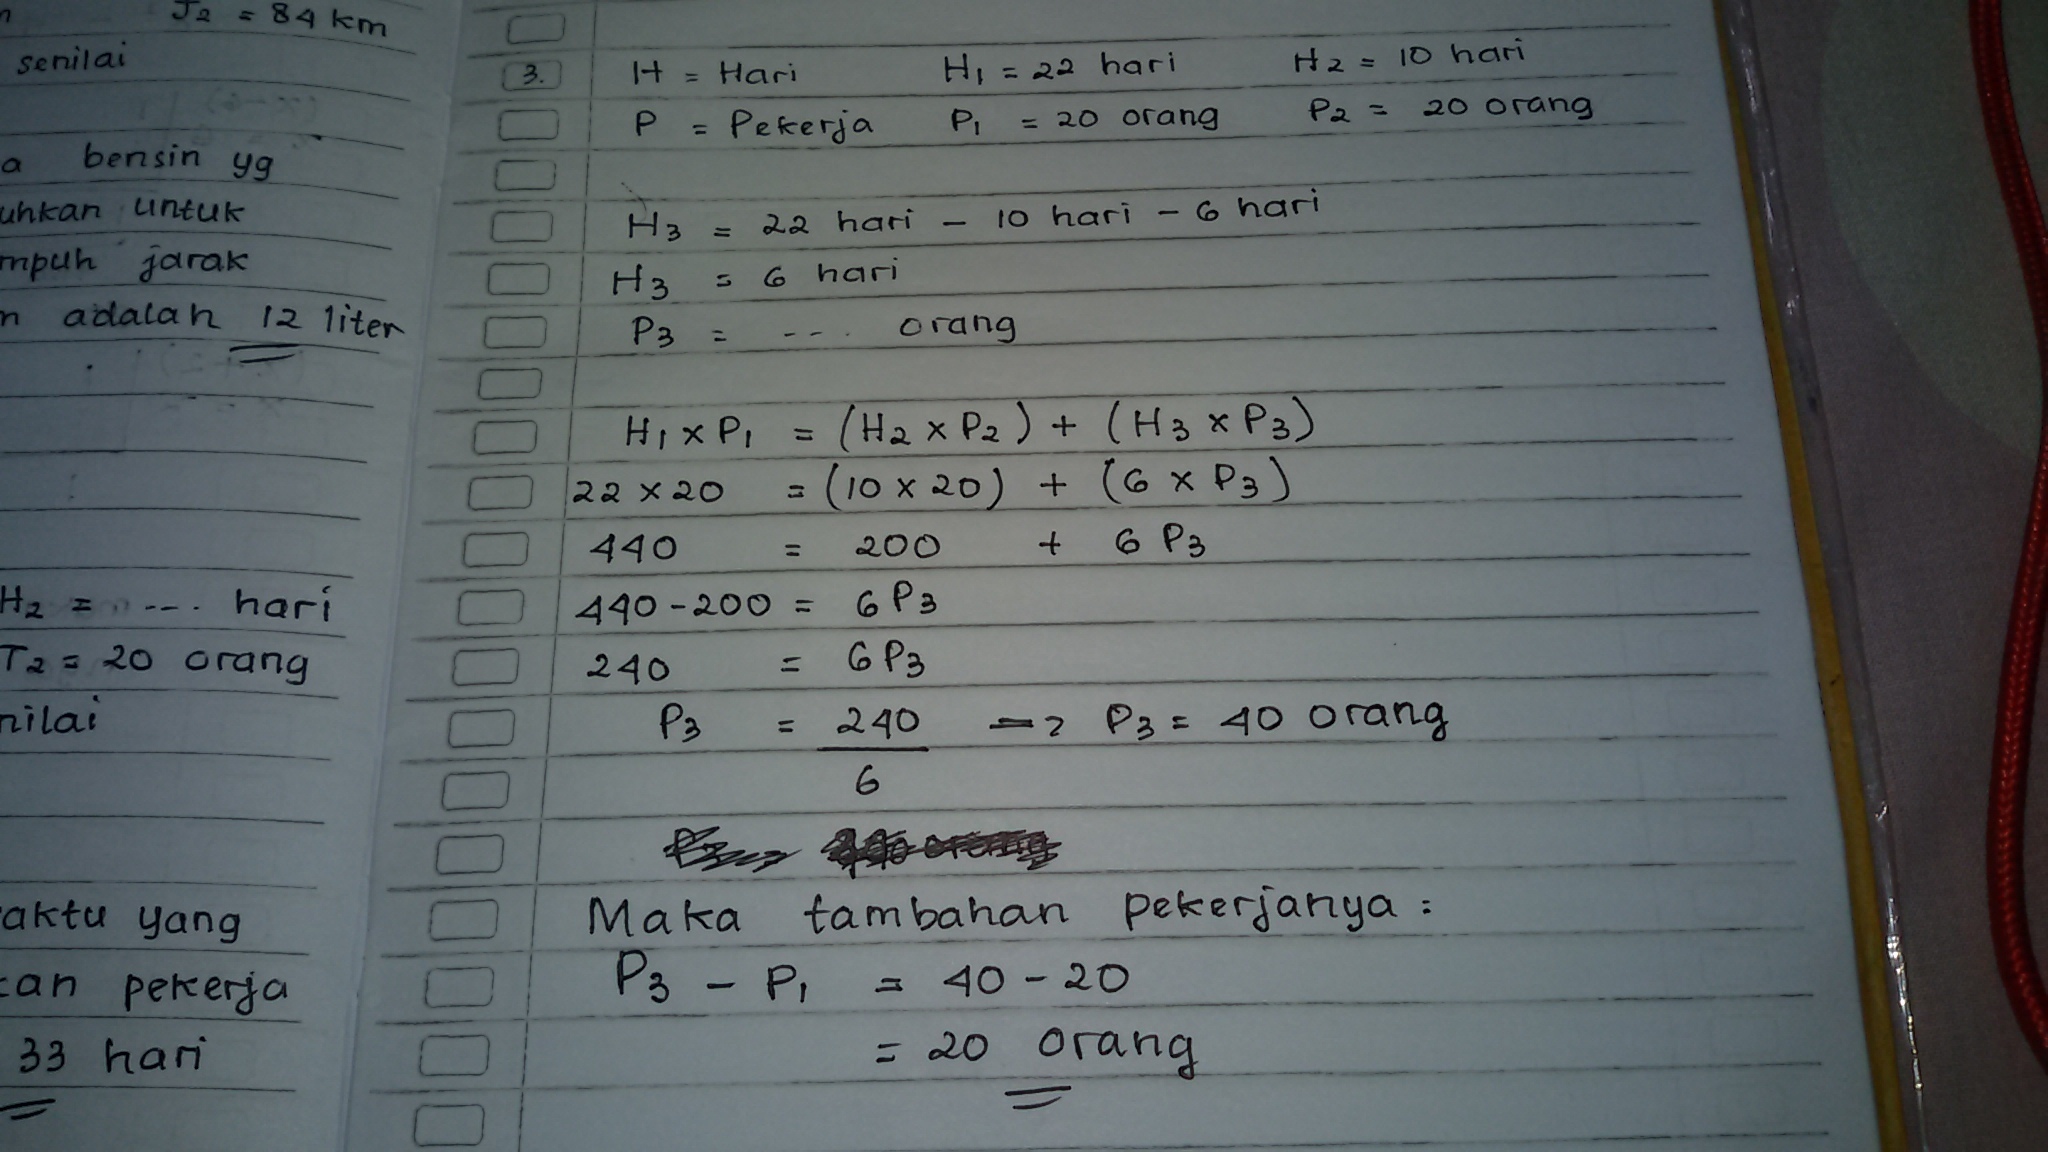 J2 = 84 km
senilai
a bensin yg
uhkan untuk
mpuh jarak
n adalah 12 liter
H2 = ... hari
T2 = 20 orang
nilai
aktu yang
kan pekerja
33 hari
3. H = Hari H1 = 22 hari H2 = 10 hari
P = Pekerja P1 = 20 orang P2 = 20 orang
H3 = 22 hari - 10 hari - 6 hari
H3 = 6 hari
P3 = .... orang
H1 x P1 = (H2 x P2) + (H3 x P3)
22 x 20 = (10 x 20) + (6 x P3)
440 = 200 + 6 P3
440 - 200 = 6 P3
240 = 6 P3
P3 = 240 => P3 = 40 orang
6
Maka tambahan pekerjanya :
P3 - P1 = 40 - 20
= 20 orang